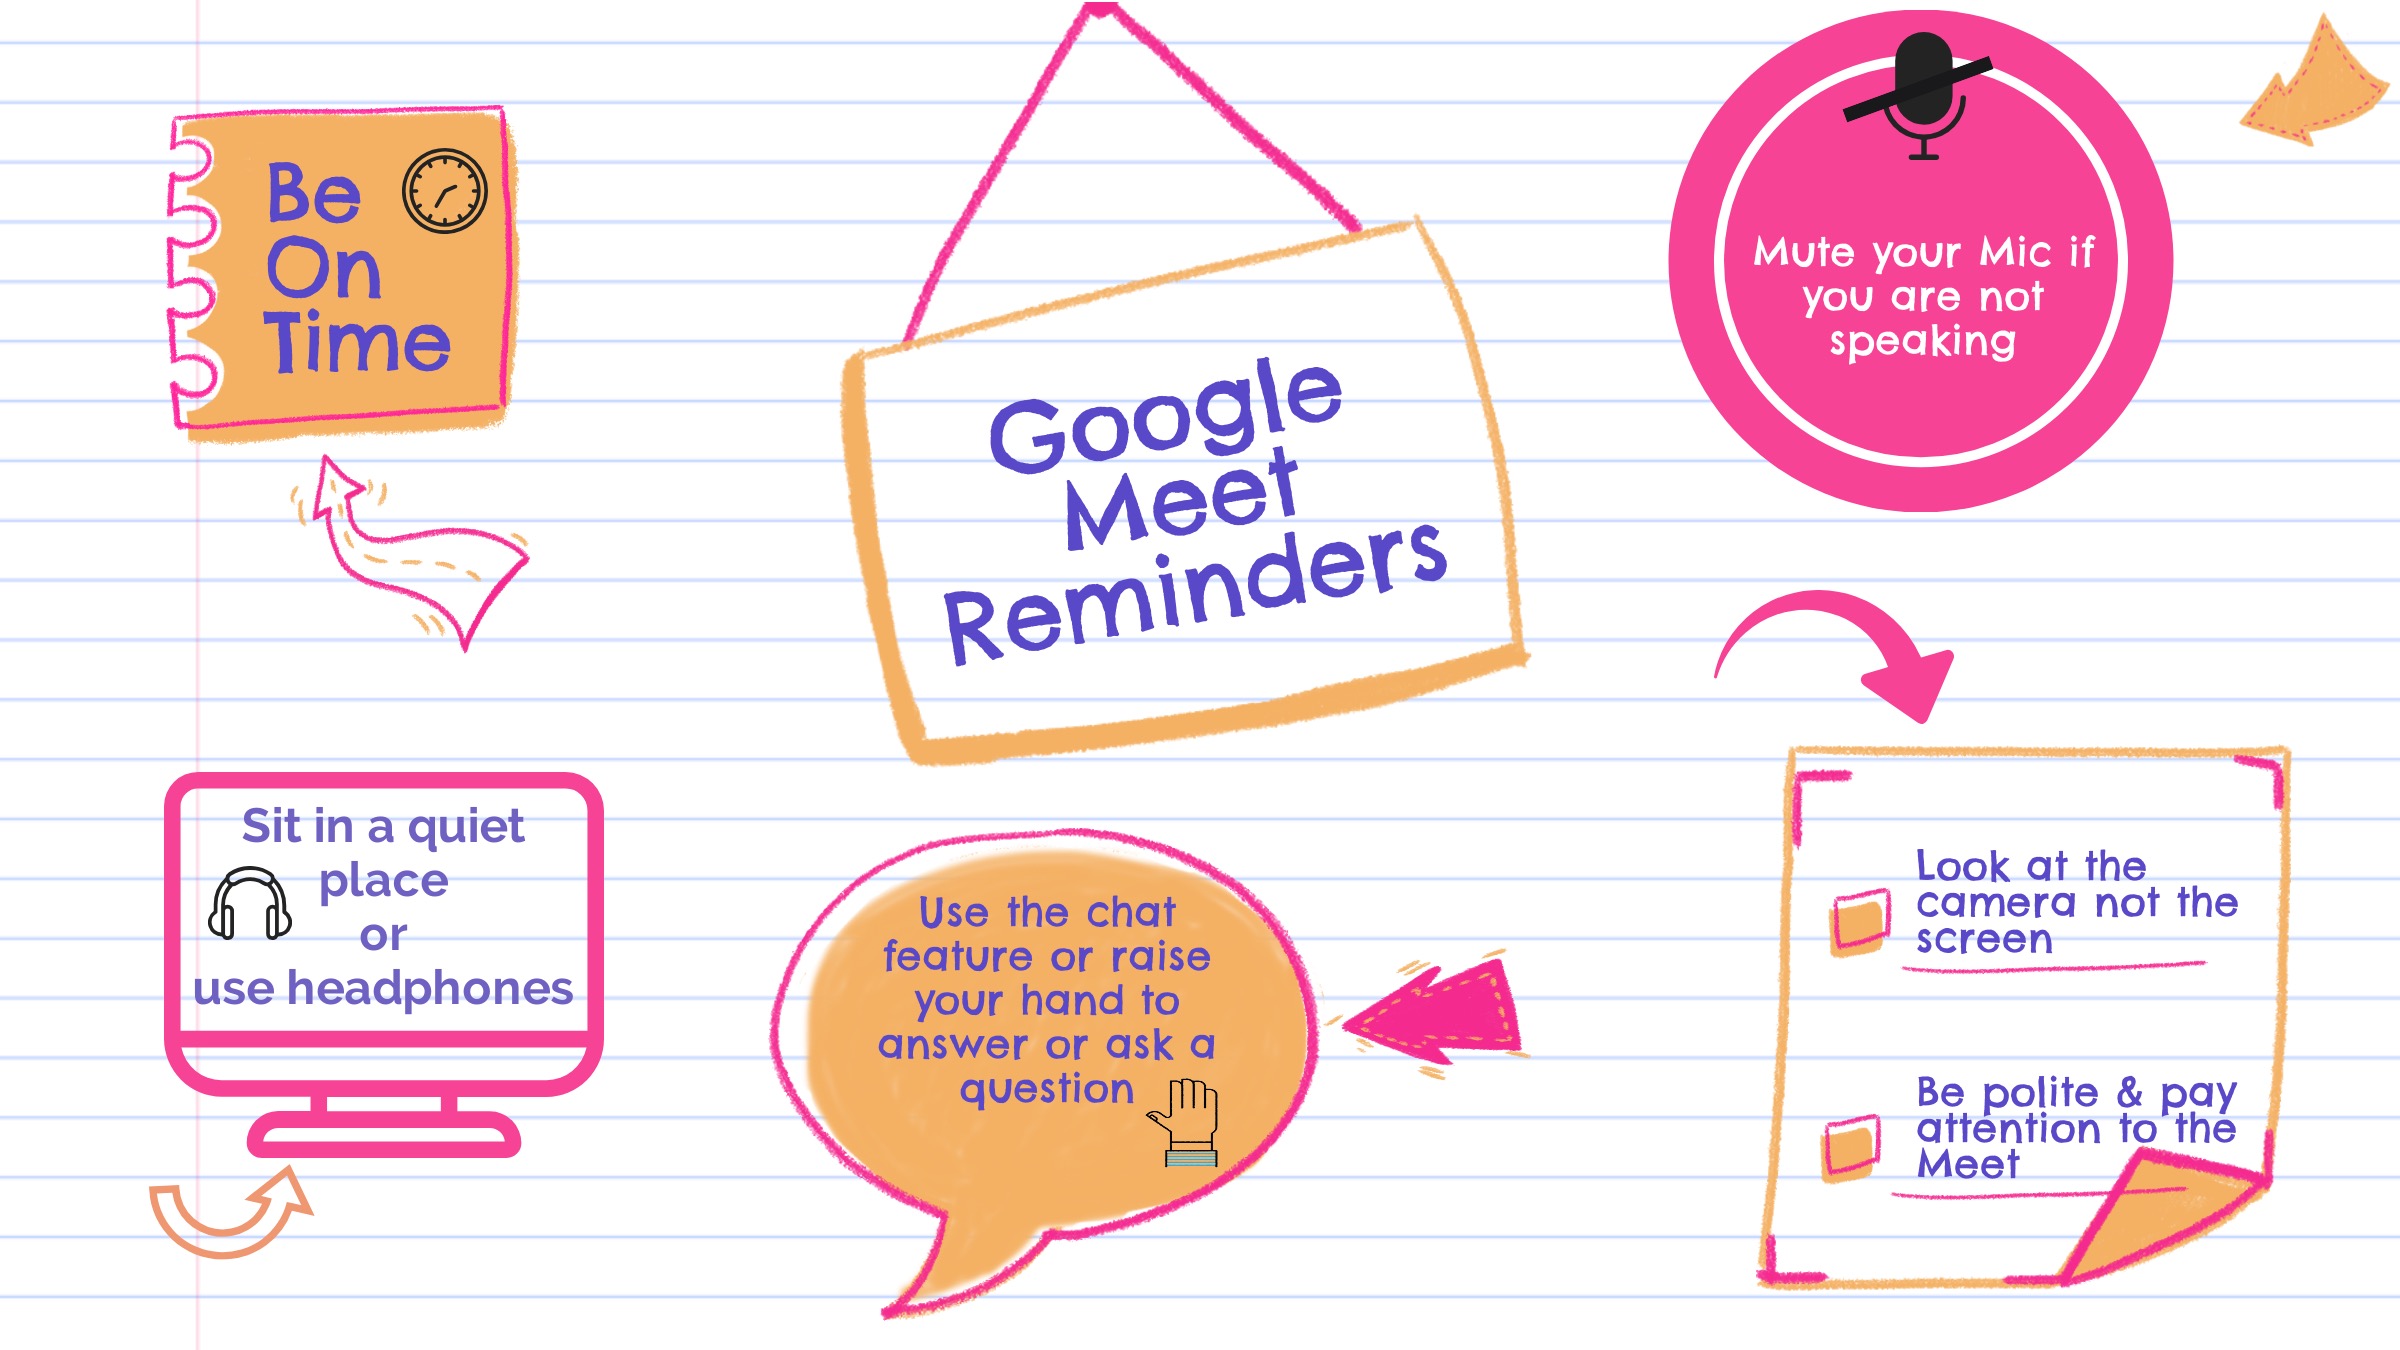 Be
On
Time
Google
Meet
Reminders
Mute your Mic if
you are not
speaking
Sit in a quiet
place
or
use headphones
Use the chat
feature or raise
your hand to
answer or ask a
question
Look at the
camera not the
screen
Be polite & pay
attention to the
Meet